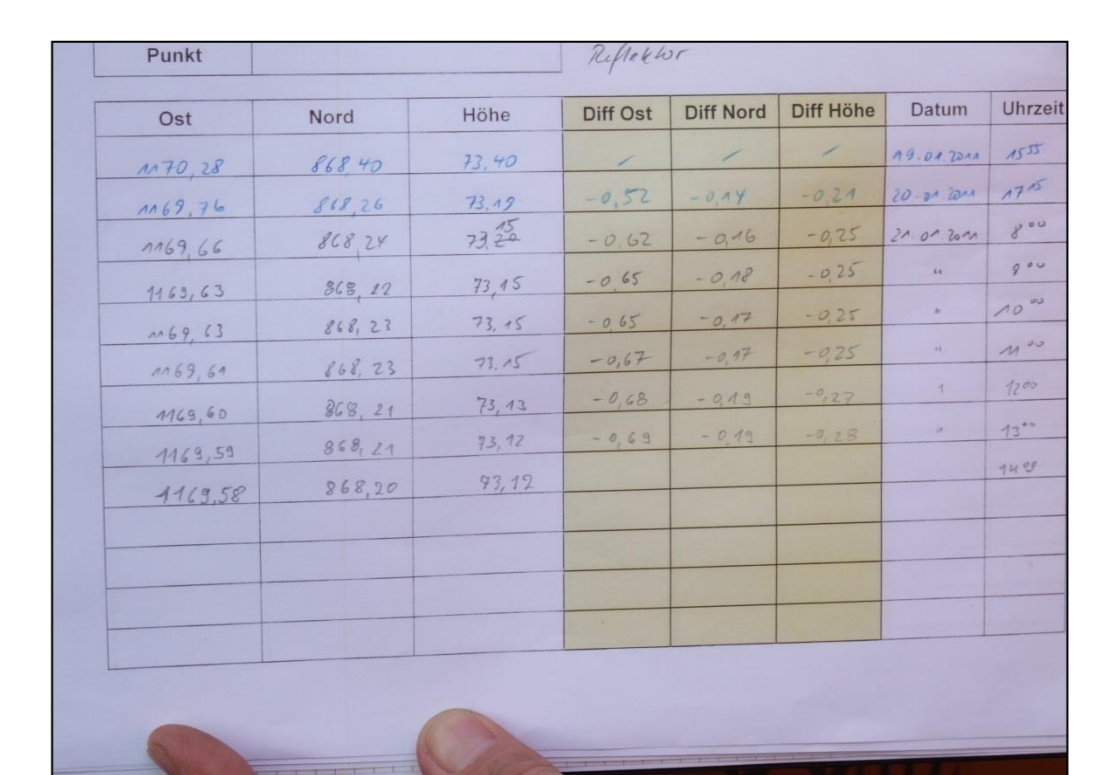 Punkt Reflektor
Ost Nord Höhe Diff Ost Diff Nord Diff Höhe Datum Uhrzeit
1170,28 868,40 73,40 / / / 19.01.2011 15 55
1169,76 868,26 73,19 -0,52 -0,14 -0,21 20.01.2011 17 15
1169,66 868,24 73,20 15 -0,62 -0,16 -0,25 21.01.2011 8 00
1169,63 868,22 73,15 -0,65 -0,18 -0,25 " 9 00
1169,63 868,23 73,15 -0,65 -0,17 -0,25 " 10 00
1169,61 868,23 73,15 -0,67 -0,17 -0,25 " 11 00
1169,60 868,21 73,13 -0,68 -0,19 -0,27 " 12 00
1169,59 868,21 73,12 -0,69 -0,19 -0,28 " 13 00
1169,58 868,20 73,12